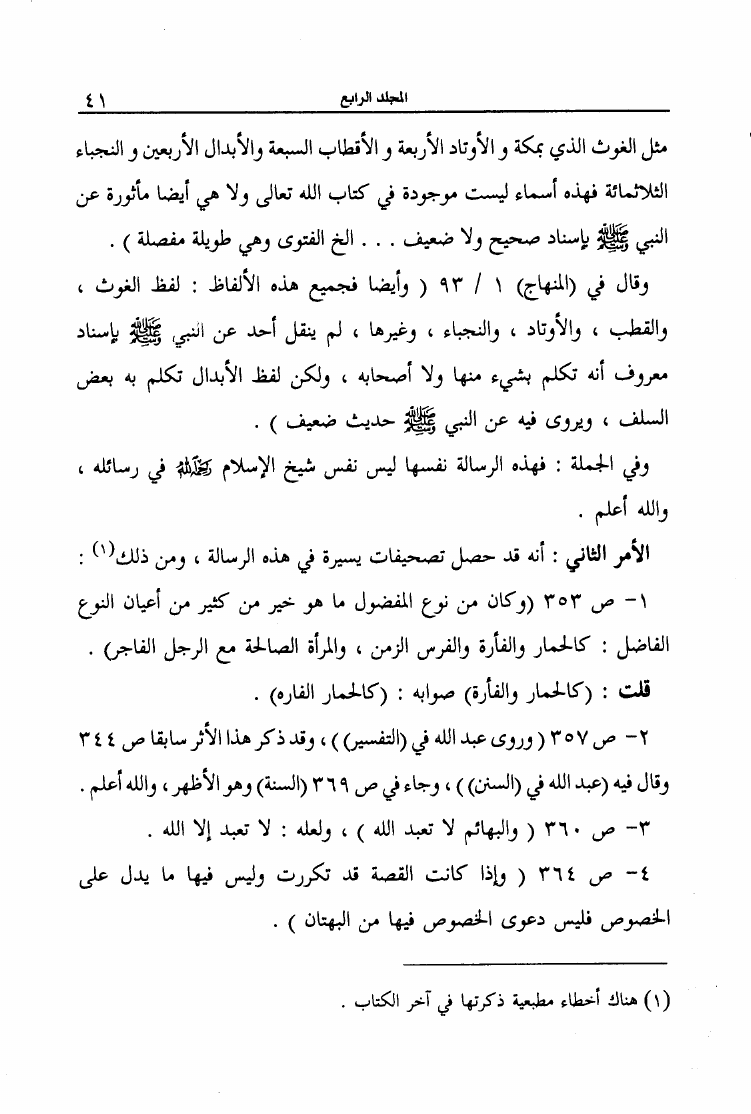 المجلد الرابع ٤١
مثل الغوث الذي بمكة و الأوتاد الأربعة و الأقطاب السبعة والأبدال الأربعين و النجباء
الثلاثمائة فهذه أسماء ليست موجودة في كتاب الله تعالى ولا هي أيضا مأثورة عن
النبي ﷺ بإسناد صحيح ولا ضعيف . . . الخ الفتوى وهي طويلة مفصلة ) .
وقال في (المنهاج) ١ / ٩٣ ( وأيضا فجميع هذه الألفاظ : لفظ الغوث ،
والقطب ، والأوتاد ، والنجباء ، وغيرها ، لم ينقل أحد عن النبي ﷺ بإسناد
معروف أنه تكلم بشيء منها ولا أصحابه ، ولكن لفظ الأبدال تكلم به بعض
السلف ، ويروى فيه عن النبي ﷺ حديث ضعيف ) .
وفي الجملة : فهذه الرسالة نفسها ليس نفس شيخ الإسلام رحمه الله في رسائله ،
والله أعلم .
الأمر الثاني : أنه قد حصل تصحيفات يسيرة في هذه الرسالة ، ومن ذلك(١) :
١- ص ٣٥٣ (وكان من نوع المفضول ما هو خير من كثير من أعيان النوع
الفاضل : كالحمار والفأرة والفرس الزمن ، والمرأة الصالحة مع الرجل الفاجر) .
قلت : (كالحمار والفأرة) صوابه : (كالحمار الفاره) .
٢- ص ٣٥٧ ( وروى عبد الله في (التفسير) ) ، وقد ذكر هذا الأثر سابقا ص ٣٤٤
وقال فيه (عبد الله في (السنن) ) ، وجاء في ص ٣٦٩ (السنة) وهو الأظهر ، والله أعلم .
٣- ص ٣٦٠ ( والبهائم لا تعبد الله ) ، ولعله : لا تعبد إلا الله .
٤- ص ٣٦٤ ( وإذا كانت القصة قد تكررت وليس فيها ما يدل على
الخصوص فليس دعوى الخصوص فيها من البهتان ) .
(١) هناك أخطاء مطبعية ذكرتها في آخر الكتاب .